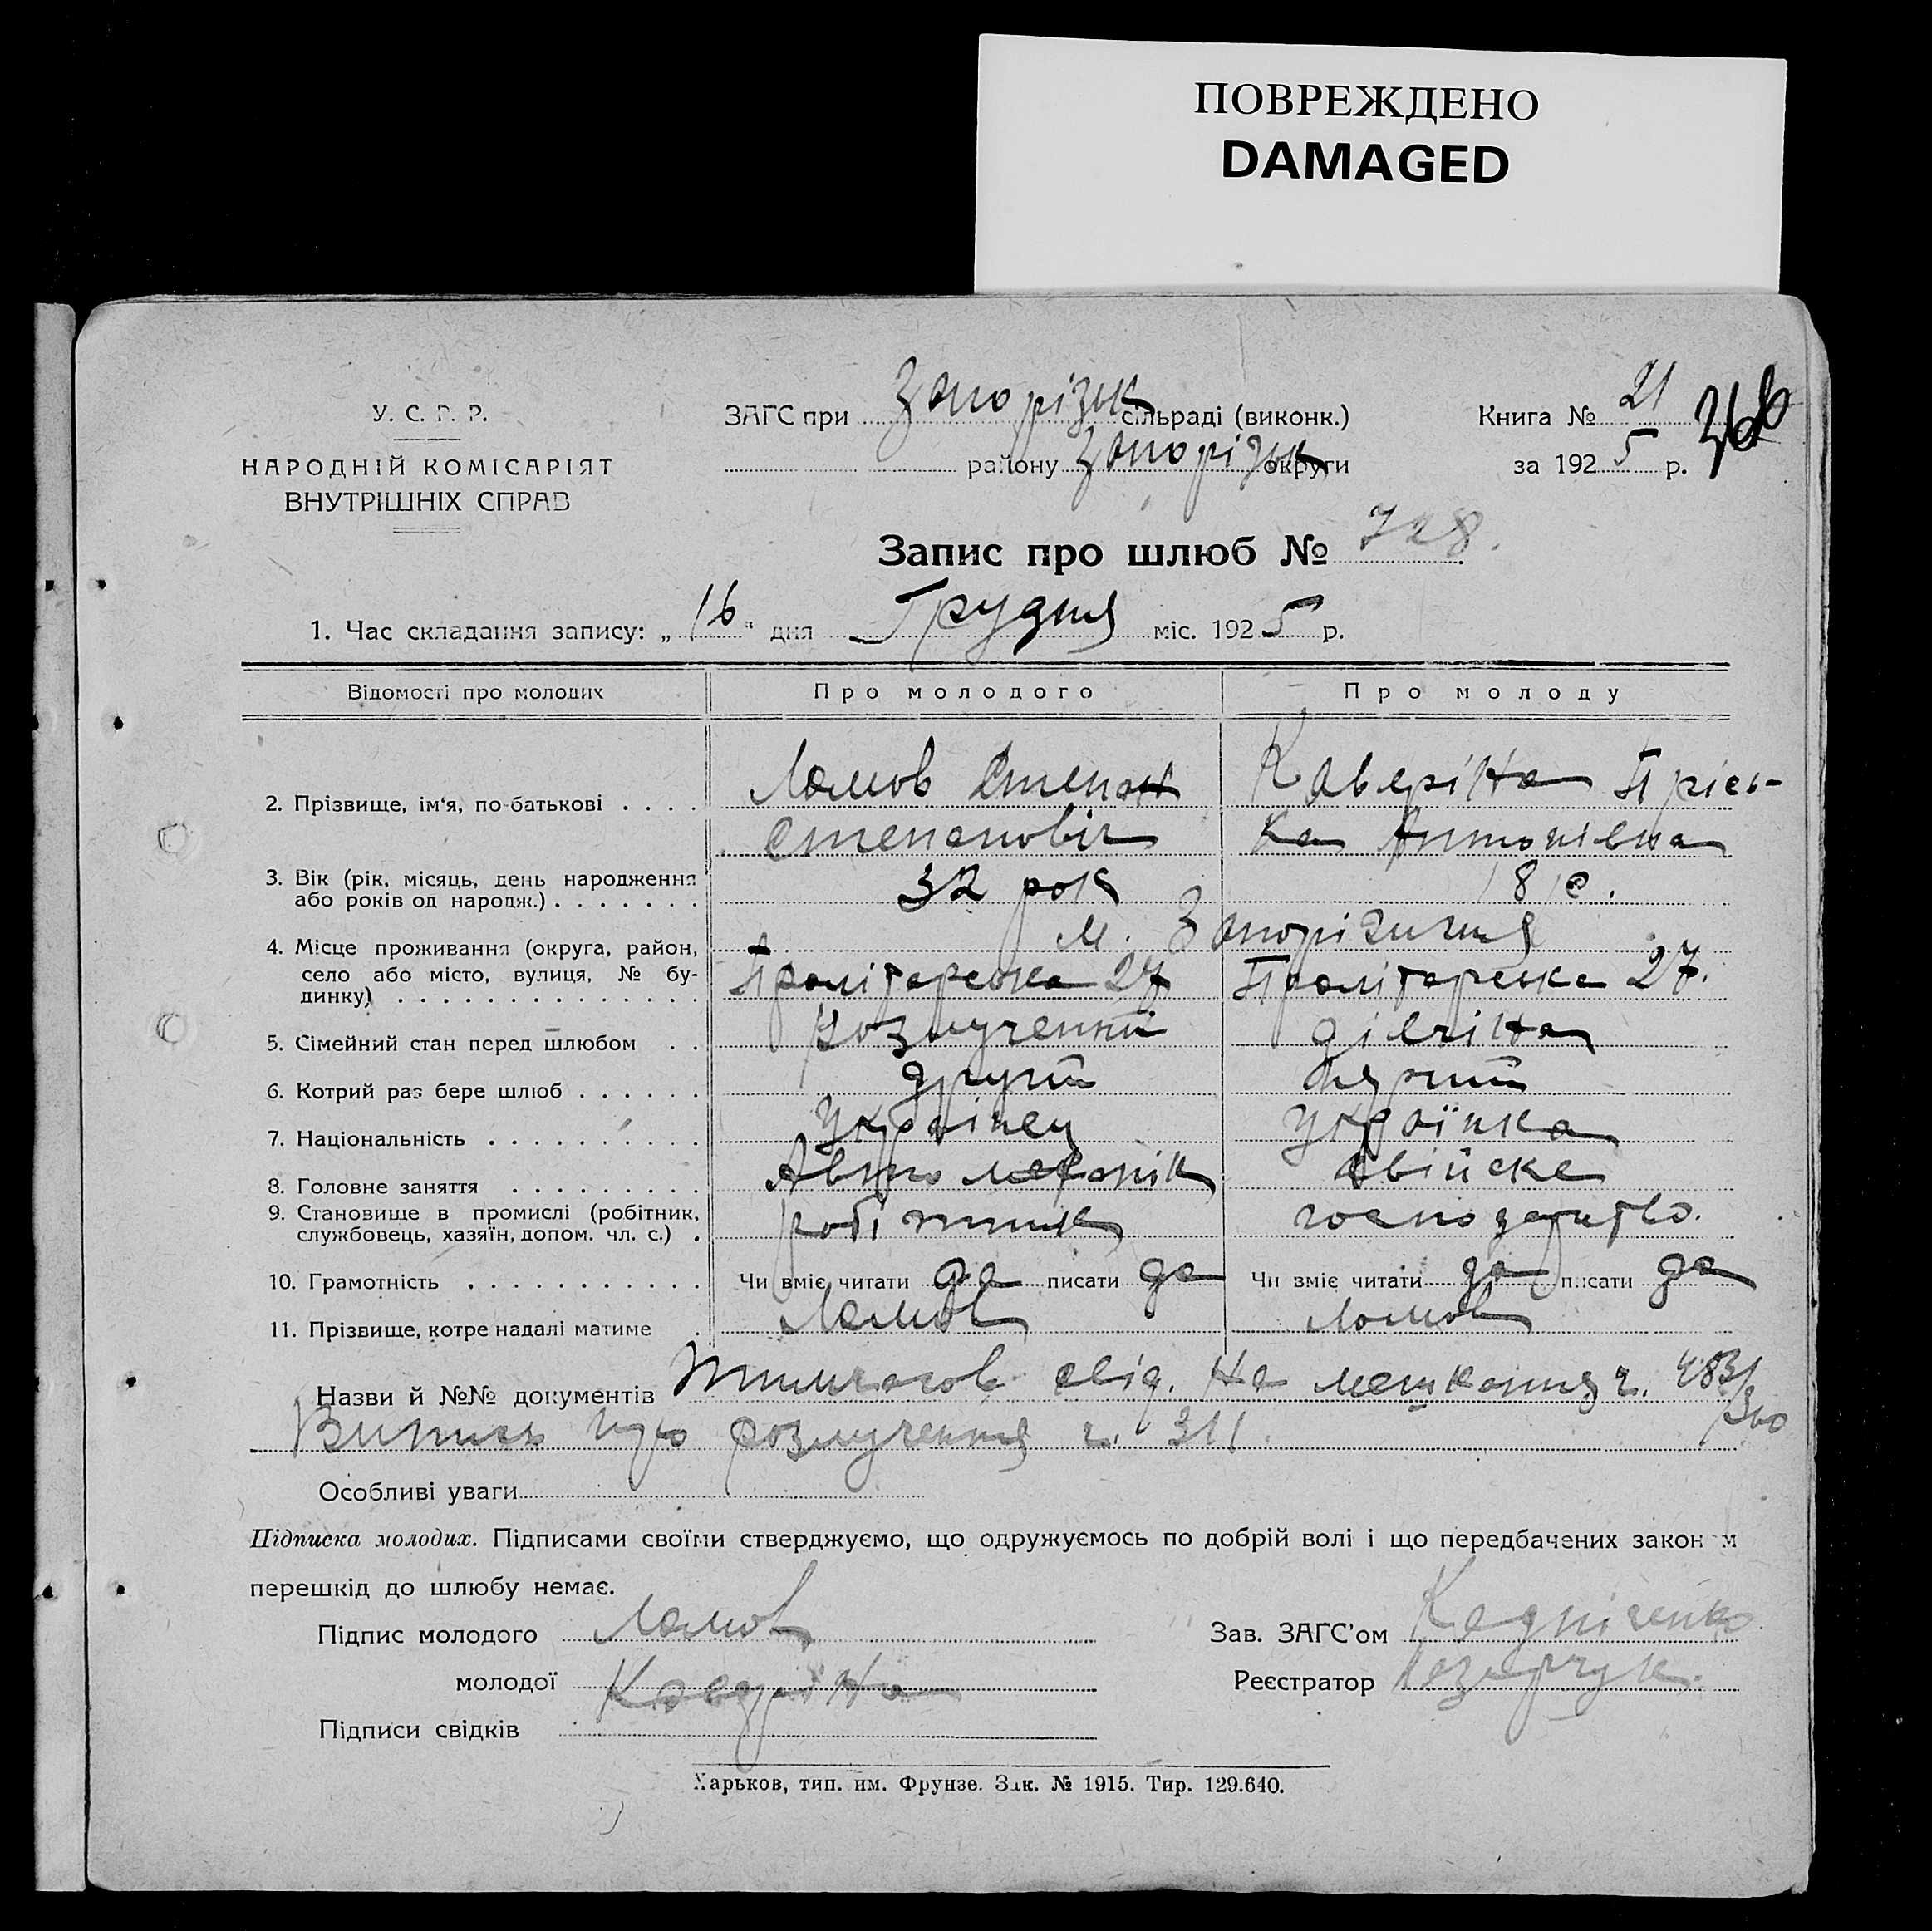 ПОВРЕЖДЕНО
DAMAGED
У. С. Р. Р.
НАРОДНІЙ КОМІСАРІЯТ
ВНУТРІШНІХ СПРАВ
ЗАГС при Запорізьк сільраді (виконк.)
району Запорізьк округи
Книга № 21
за 1925 р.
366
Запис про шлюб № 728.
1. Час складання запису: „16" дня Грудня міс. 1925 р.
Відомості про молодих Про молодого Про молоду
2. Прізвище, ім'я, по-батькові . . . . Ламов Степан Каверіна Прісь-
Степановіч ка Антонівна
3. Вік (рік, місяць, день народження
або років од народж.) . . . . . . . 32 рок 18
4. Місце проживання (округа, район,
село або місто, вулиця, № бу-
динку) . . . . . . . . . . . . . . .
м. Запоріжжя
Пролітарська 27 Пролітарська 27.
5. Сімейний стан перед шлюбом . . Розлученний дівчіна
6. Котрий раз бере шлюб . . . . . . другий перший
7. Національність . . . . . . . . . . Українец Українка
8. Головне заняття . . . . . . . . . Авто механік свійске
9. Становище в промислі (робітник,
службовець, хазяїн, допом. чл. с.) . робітник господарство.
10. Грамотність . . . . . . . . . . . Чи вміє читати да писати да Чи вміє читати да писати да
11. Прізвище, котре надалі матиме . Ламов Ламов
Назви й №№ документів Тимчасов свід. на мешкання ч.
Випись про розлучення ч. 311.
Особливі уваги
Підписка молодих. Підписами своїми стверджуємо, що одружуємось по добрій волі і що передбачених законом
перешкід до шлюбу немає.
Підпис молодого Ламов Зав. ЗАГС'ом
молодої Каверіна Реєстратор
Підписи свідків
Харьков, тип. им. Фрунзе. Зак. № 1915. Тир. 129.640.